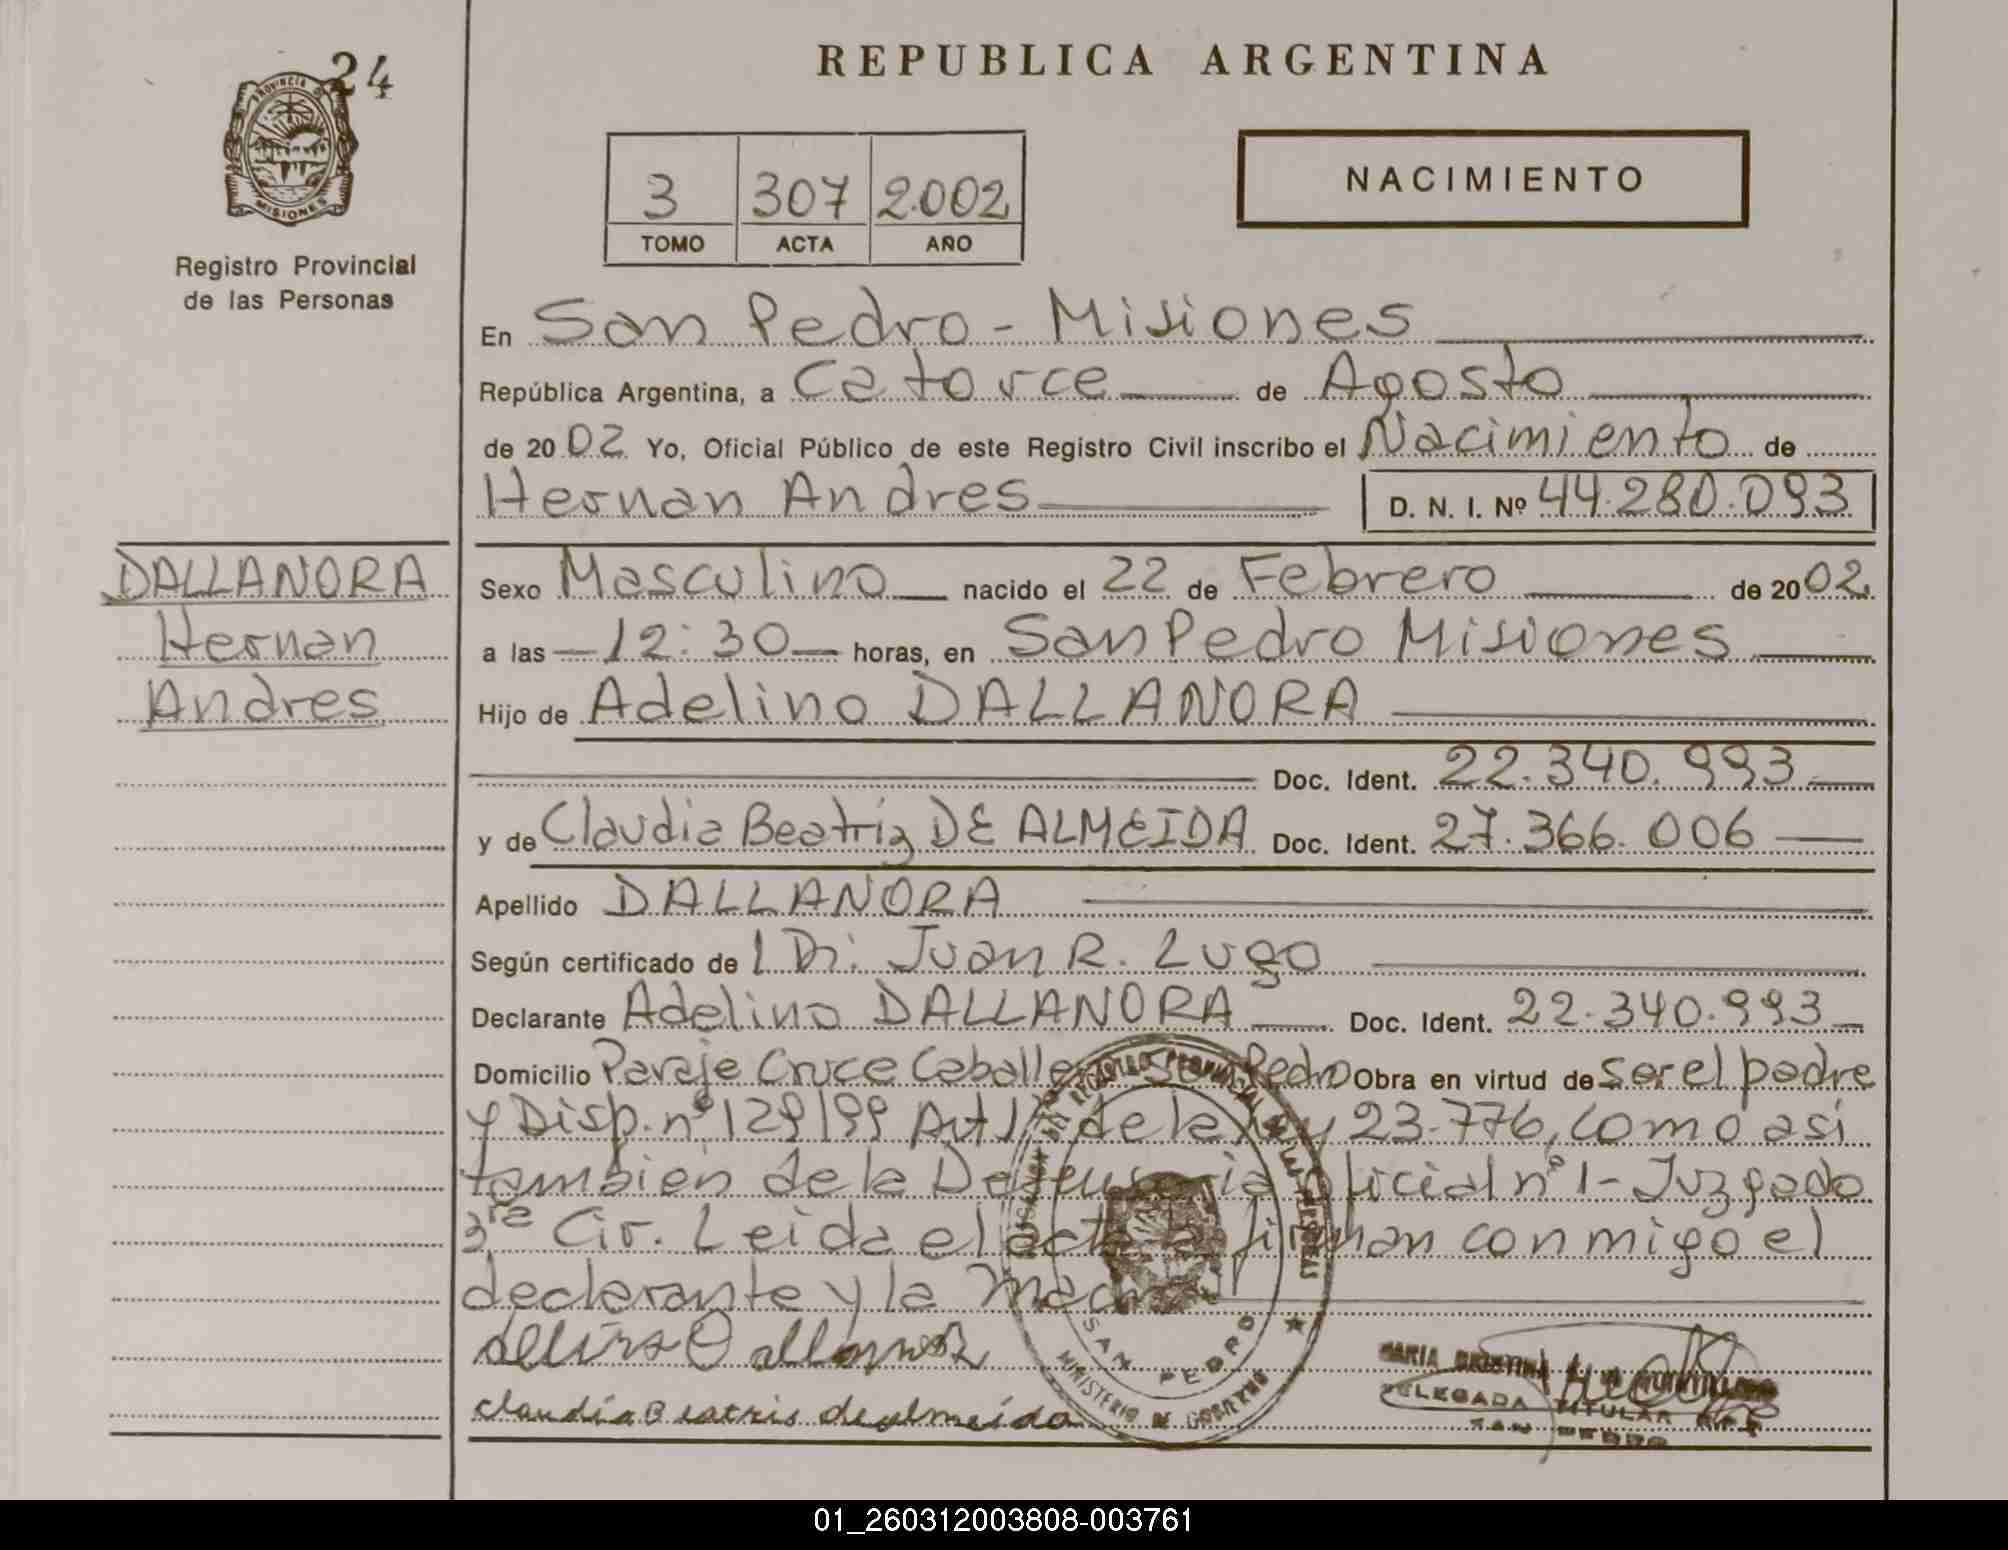 24
REPUBLICA ARGENTINA
PROVINCIA DE
MISIONES
Registro Provincial
de las Personas
3 307 2.002
TOMO ACTA AÑO
NACIMIENTO
En San Pedro - Misiones
República Argentina, a Catorce de Agosto
de 2002 Yo, Oficial Público de este Registro Civil inscribo el Nacimiento de
Hernan Andres D. N. I. Nº 44.280.093
DALLANORA
Hernan
Andres
Sexo Masculino nacido el 22 de Febrero de 2002.
a las 12:30 horas, en San Pedro Misiones
Hijo de Adelino DALLANORA
Doc. Ident. 22.340.993
y de Claudia Beatriz DE ALMEIDA Doc. Ident. 27.366.006
Apellido DALLANORA
Según certificado de l Dr. Juan R. Lugo
Declarante Adelino DALLANORA Doc. Ident. 22.340.993
Domicilio Paraje Cruce Caballero San Pedro Obra en virtud de ser el padre
y Disp. nº 129/99 Art 1º de la ley 23.776, como asi
también de la Defensoria Oficial nº 1 - Juzgado
3ra Cir. Leida el acta la firman conmigo el
declarante y la Madre
claudia Beatris de almeida
SAN PEDRO
MINISTERIO DE GOBIERNO
MARIA CRISTINA
DELEGADA TITULAR R.P.P.
SAN PEDRO
01_260312003808-003761